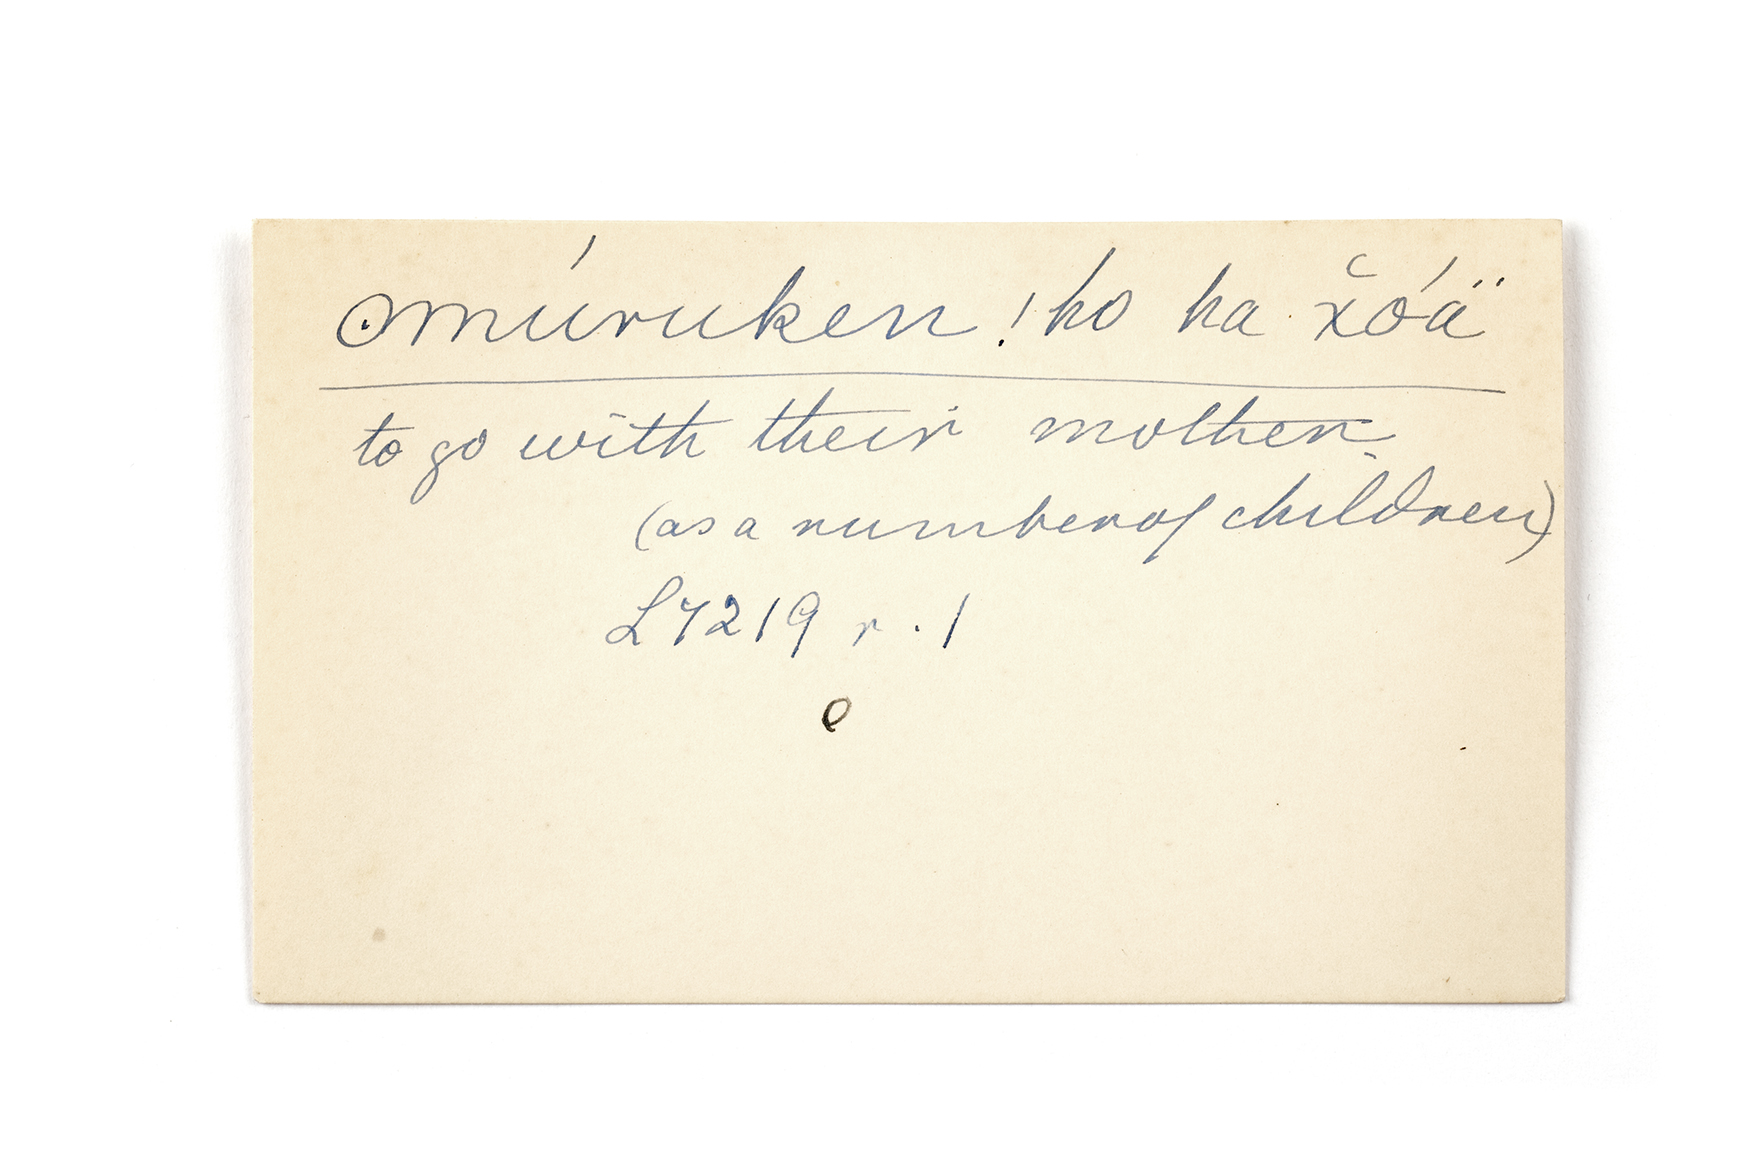 ʘmúruken !ho ha x̆óä
to go with their mother.
(as a number of children)
L7219 r. 1
e